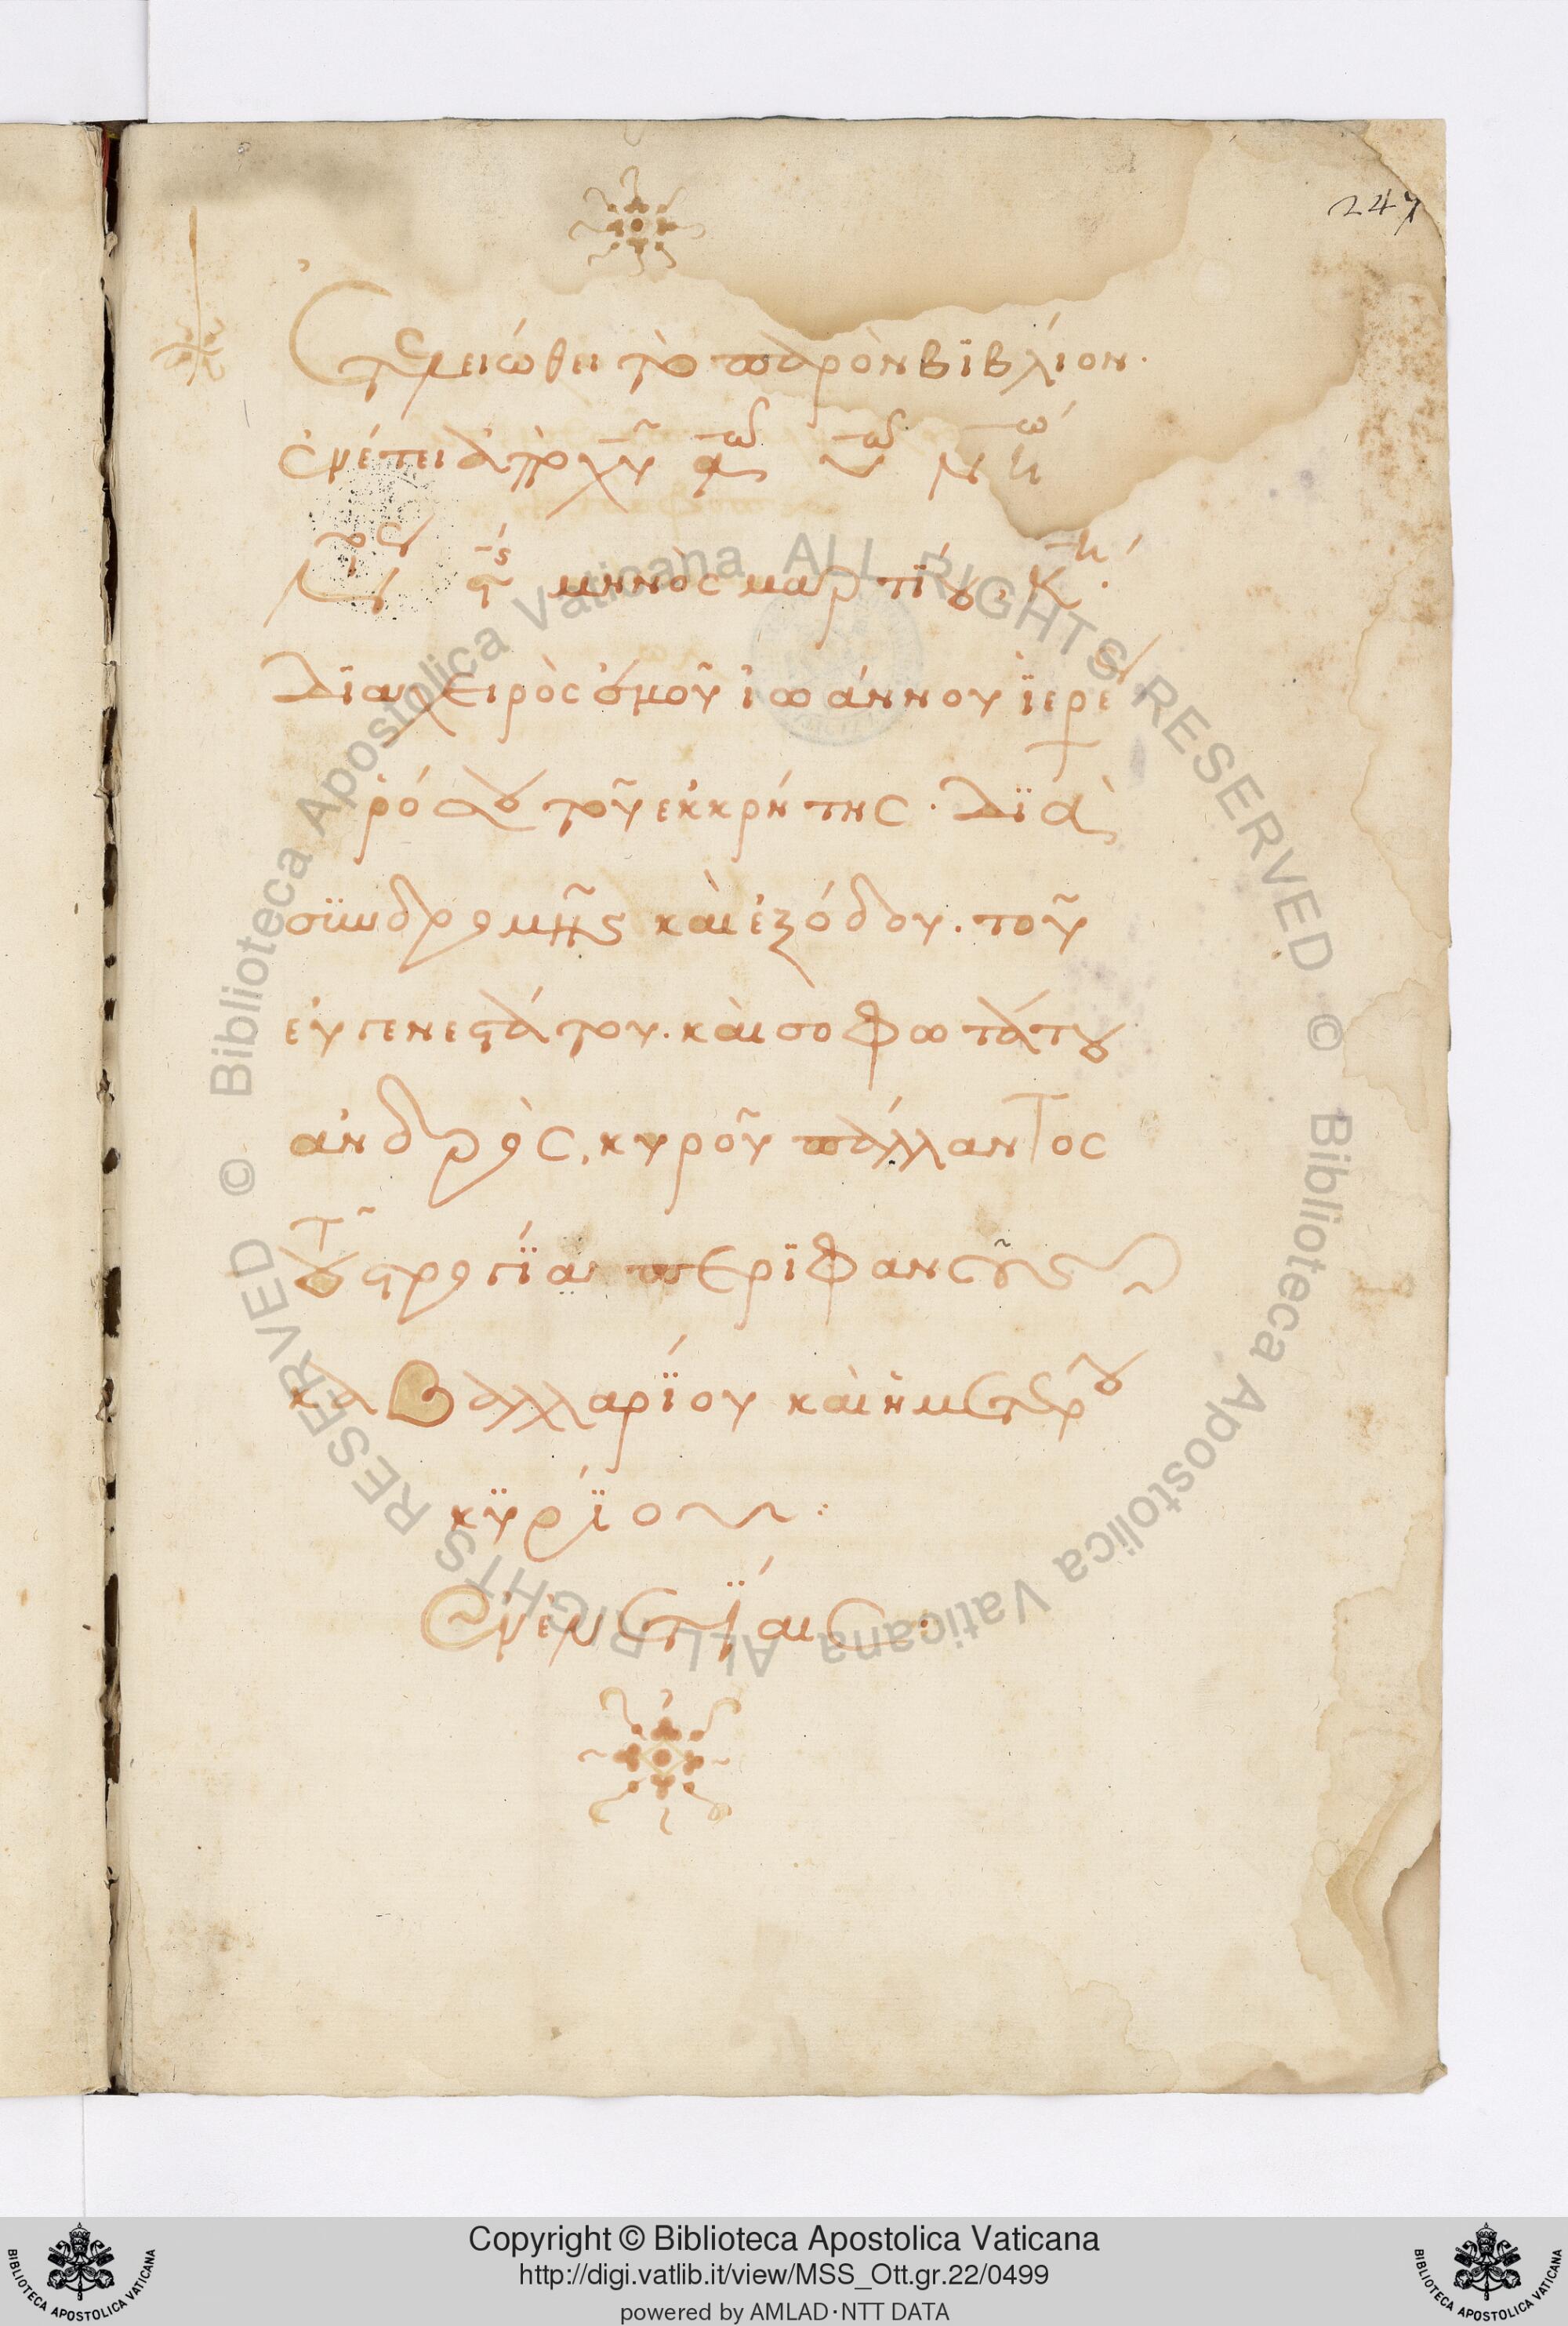 247
Ἐτελειώθει τὸ παρὸν βϊβλίον.
ἐν ἔτει ἀπὸ χῦ αω νω μ ηω
ις μηνὸς μαρτίου. κη.
Δϊα χειρὸς ἐμοῦ ἰωάννου ϊερέ
ρόσου τοῦ ἐκ κρήτης. Δϊὰ
σϋνδρομῆς καὶ ἐξόδου. τοῦ
εὐγενεστάτου. καὶ σοφωτάτου
ἀνδρὸς, κυροῦ πάλλαντος
τοῦ στρογϊα περϊφανοῦς
καβαλλαρίου καὶ ἡμετέρου
κϋρίου:
Ἐν ἐνετίαις:
© Biblioteca Apostolica Vaticana ALL RIGHTS RESERVED © Biblioteca Apostolica Vaticana ALL RIGHTS RESERVED
Copyright © Biblioteca Apostolica Vaticana
http://digi.vatlib.it/view/MSS_Ott.gr.22/0499
powered by AMLAD·NTT DATA
BIBLIOTECA APOSTOLICA VATICANA
BIBLIOTECA APOSTOLICA VATICANA